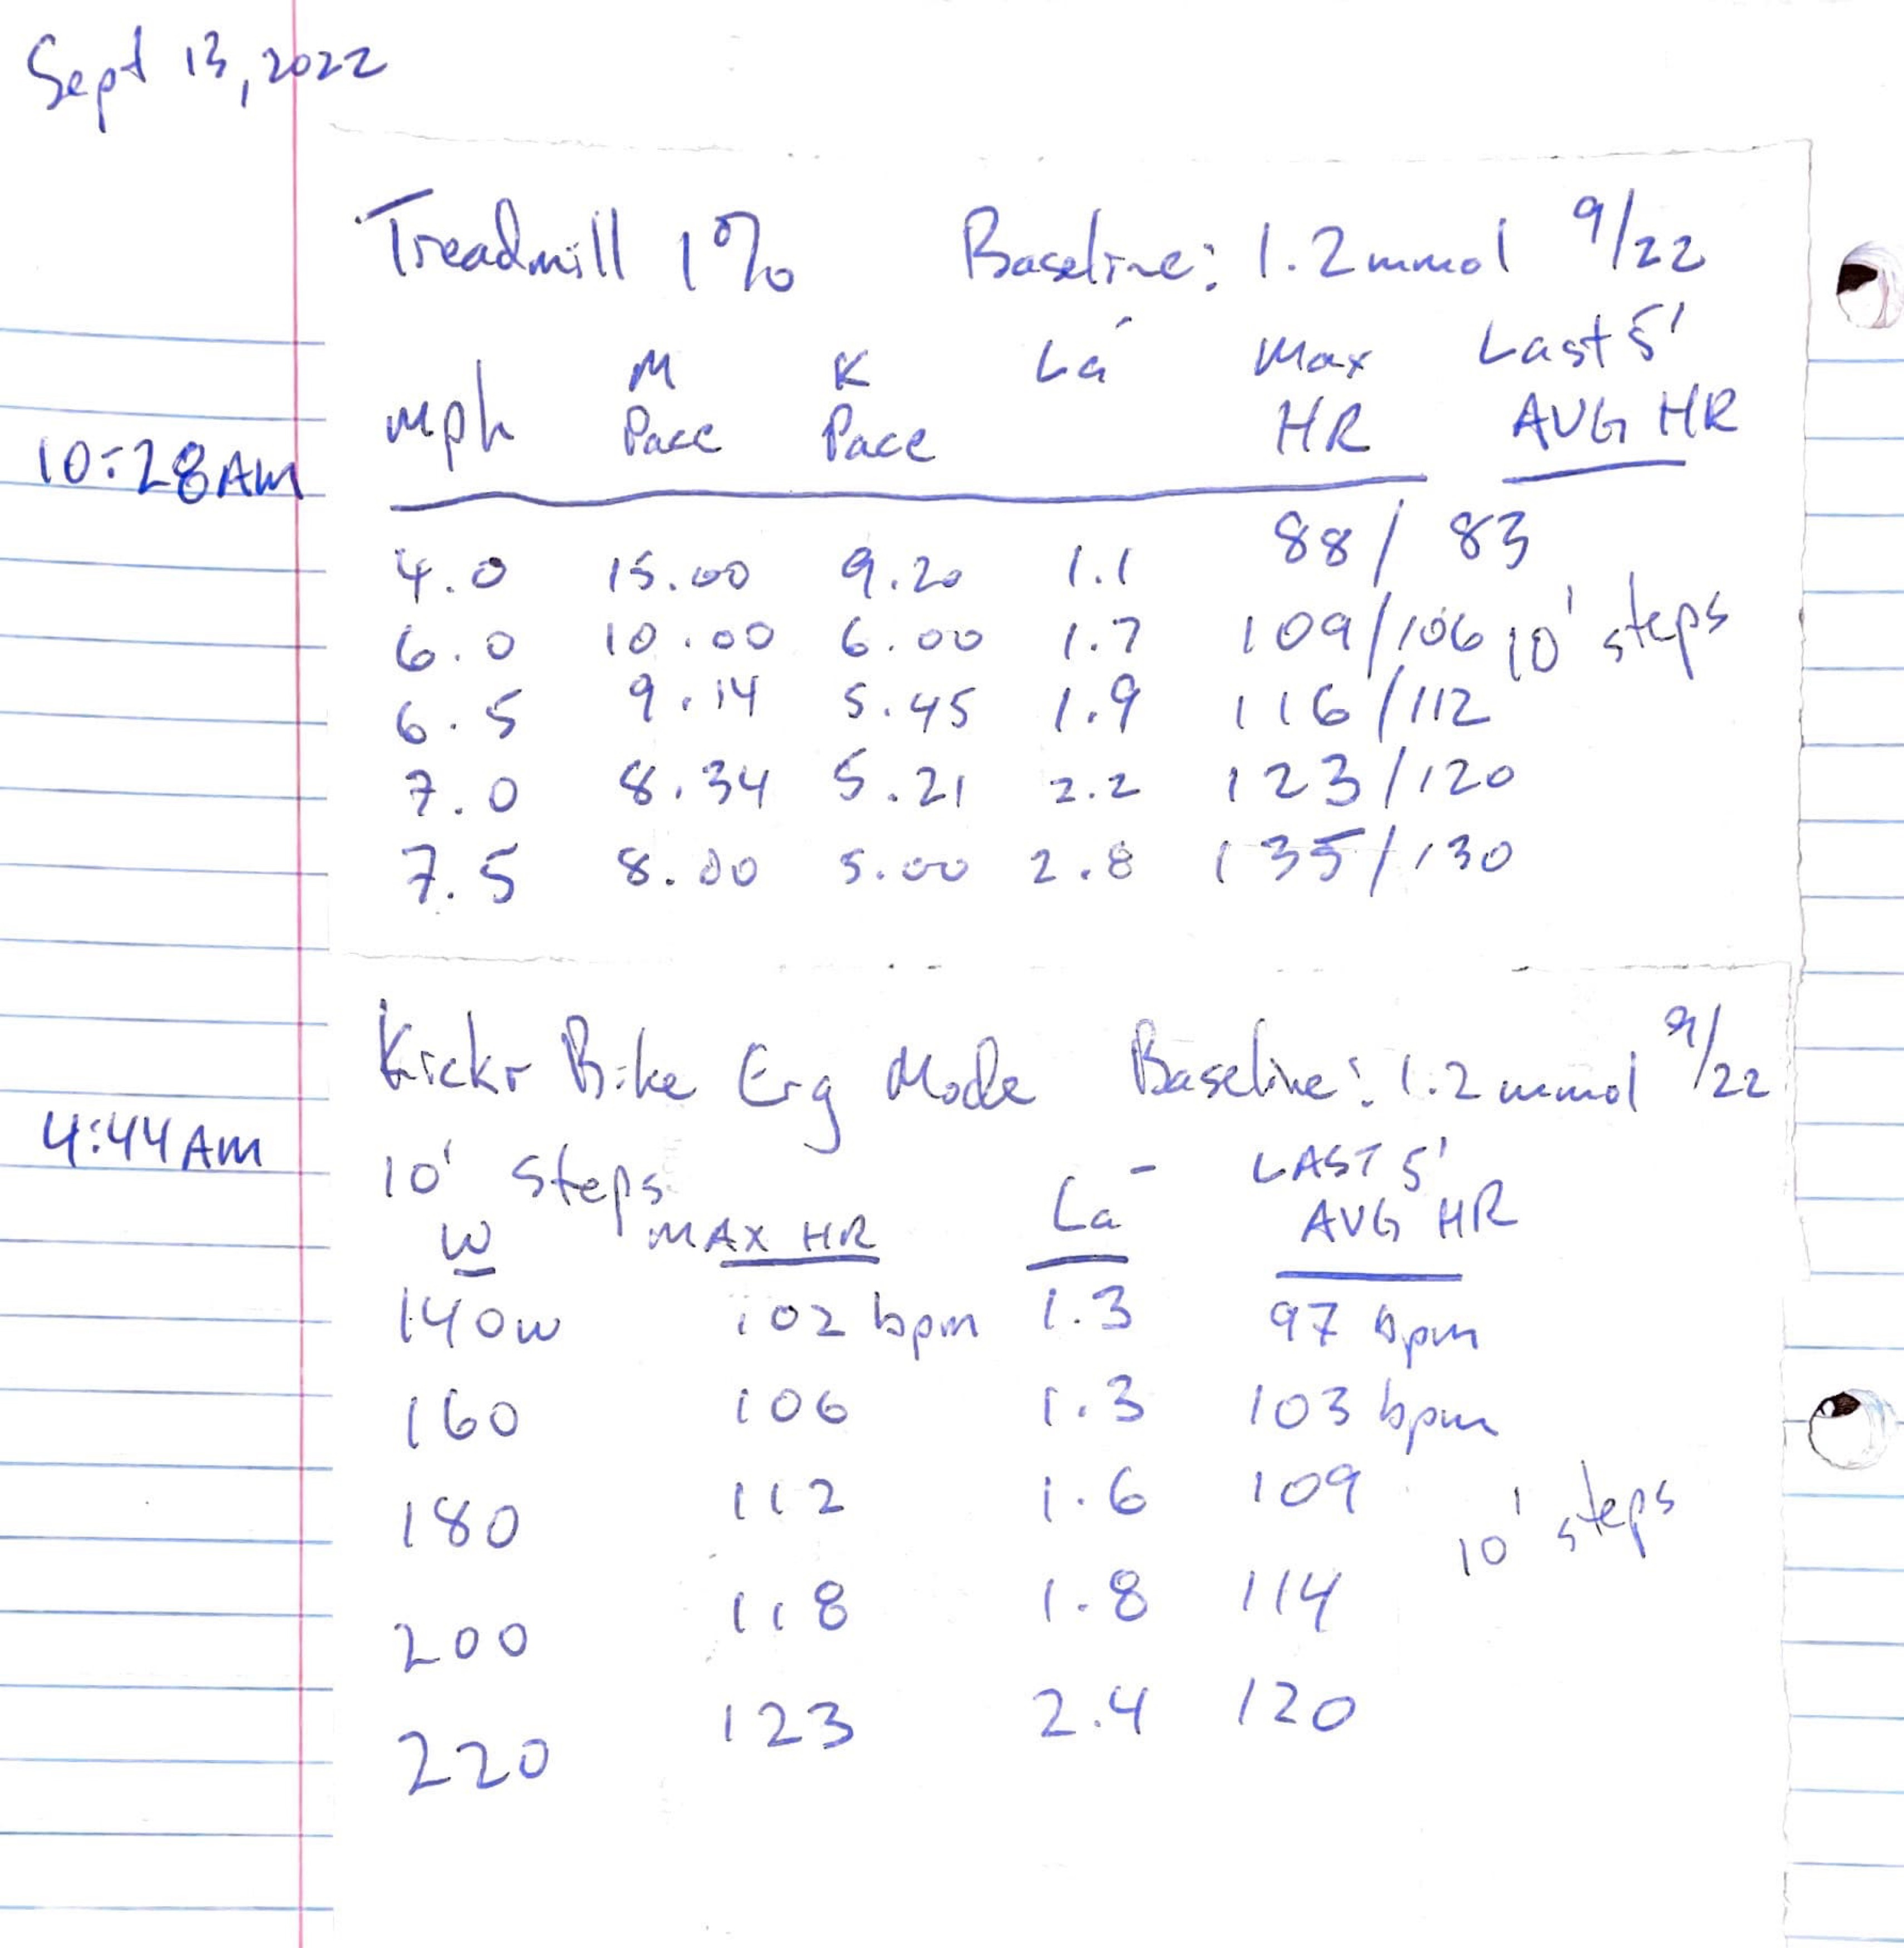 Sept 13, 2022
Treadmill 1% Baseline: 1.2 mmol 9/22
mph M Pace K Pace La- Max HR Last 5' AVG HR
10:28 AM
4.0 15.00 9.20 1.1 88 / 83
6.0 10.00 6.00 1.7 109/106 10' steps
6.5 9.14 5.45 1.9 116/112
7.0 8.34 5.21 2.2 123/120
7.5 8.00 5.00 2.8 135/130
Kickr Bike Erg Mode Baseline: 1.2 mmol 9/22
4:44 AM
10' steps
W MAX HR La- LAST 5' AVG HR
140w 102 bpm 1.3 97 bpm
160 106 1.3 103 bpm
180 112 1.6 109
10' steps
200 118 1.8 114
220 123 2.4 120